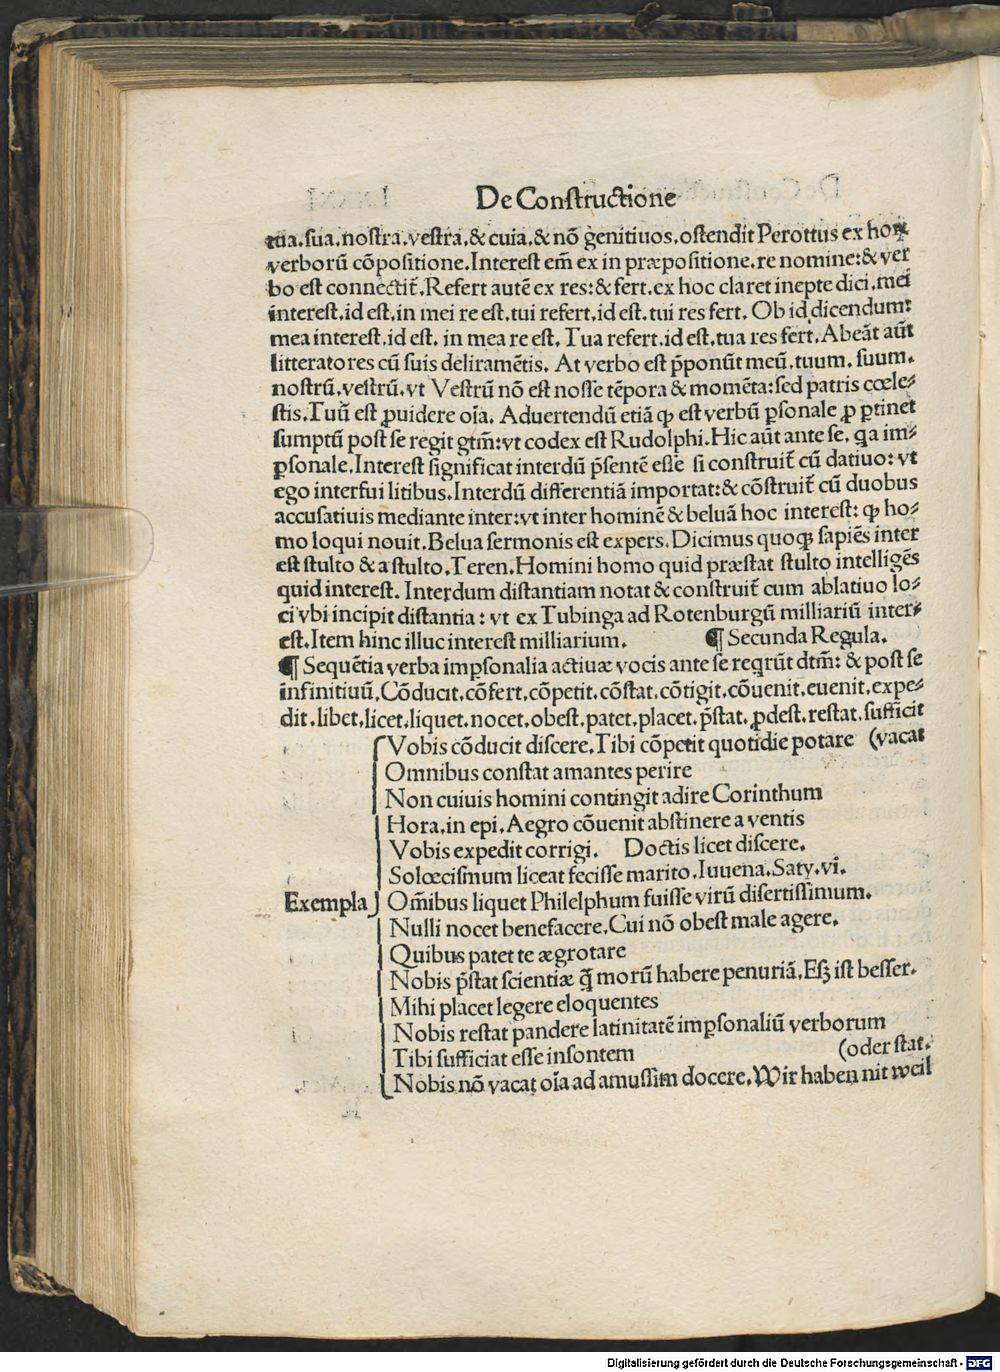 De Constructione
tua.sua.nostra.vestra.& cuia.& nõ genitiuos.ostendit Perottus ex hoꝝ
verborũ cõpositione.Interest em̃ ex in præpositione.re nomine:& ver
bo est connectit̃.Refert autẽ ex res:& fert.ex hoc claret inepte dici.mei
interest.id est.in mei re est.tui refert.id est.tui res fert. Ob id dicendum:
mea interest.id est. in mea re est. Tua refert.id est.tua res fert.Abeãt aũt
litteratores cũ suis deliramẽtis. At verbo est p̃ponũt meũ.tuum. suum.
nostrũ.vestrũ.vt Vestrũ nõ est nosse tẽpora & momẽta:sed patris cœle⸗
stis.Tuũ est ꝓuidere oĩa. Aduertendũ etiã ꝙ est verbũ ꝑsonale ꝓ ꝑtinet
sumptũ post se regit gtm̃:vt codex est Rudolphi.Hic aũt ante se. q̃a im⸗
ꝑsonale.Interest significat interdũ p̃sentẽ esse si construit̃ cũ datiuo: vt
ego interfui litibus.Interdũ differentiã importat:& cõstruit̃ cũ duobus
accusatiuis mediante inter:vt inter hominẽ & beluã hoc interest: ꝙ ho⸗
mo loqui nouit.Belua sermonis est expers.Dicimus quoqꝫ sapiẽs inter
est stulto & a stulto.Teren.Homini homo quid præstat stulto intelligẽs
quid interest. Interdum distantiam notat & construit̃ cum ablatiuo lo⸗
ci vbi incipit distantia: vt ex Tubinga ad Rotenburgũ milliariũ inter⸗
est.Item hinc illuc interest milliarium. ¶ Secunda Regula.
¶ Sequẽtia verba imꝑsonalia actiuæ vocis ante se reqrũt dtm̃: & post se
infinitiuũ.Cõducit.cõfert.cõpetit.cõstat.cõtigit.cõuenit.euenit.expe⸗
dit.libet.licet.liquet.nocet.obest.patet.placet.p̃stat.ꝓdest.restat.sufficit
Vobis cõducit discere.Tibi cõpetit quotidie potare (vacat
Omnibus constat amantes perire
Non cuiuis homini contingit adire Corinthum
Hora.in epi.Aegro cõuenit abstinere a ventis
Vobis expedit corrigi. Doctis licet discere.
Solœcismum liceat fecisse marito.Iuuena.Saty.vi.
Exempla Om̃ibus liquet Philelphum fuisse virũ disertissimum.
Nulli nocet benefacere.Cui nõ obest male agere.
Quibus patet te ægrotare
Nobis p̃stat scientiæ q̃ morũ habere penuriã.Eſʒ ist besser.
Mihi placet legere eloquentes
Nobis restat pandere latinitatẽ imꝑsonaliũ verborum
Tibi sufficiat esse insontem (oder stat.
Nobis nõ vacat oĩa ad amussim docere.Wir haben nit weil
Digitalisierung gefördert durch die Deutsche Forschungsgemeinschaft - DFG